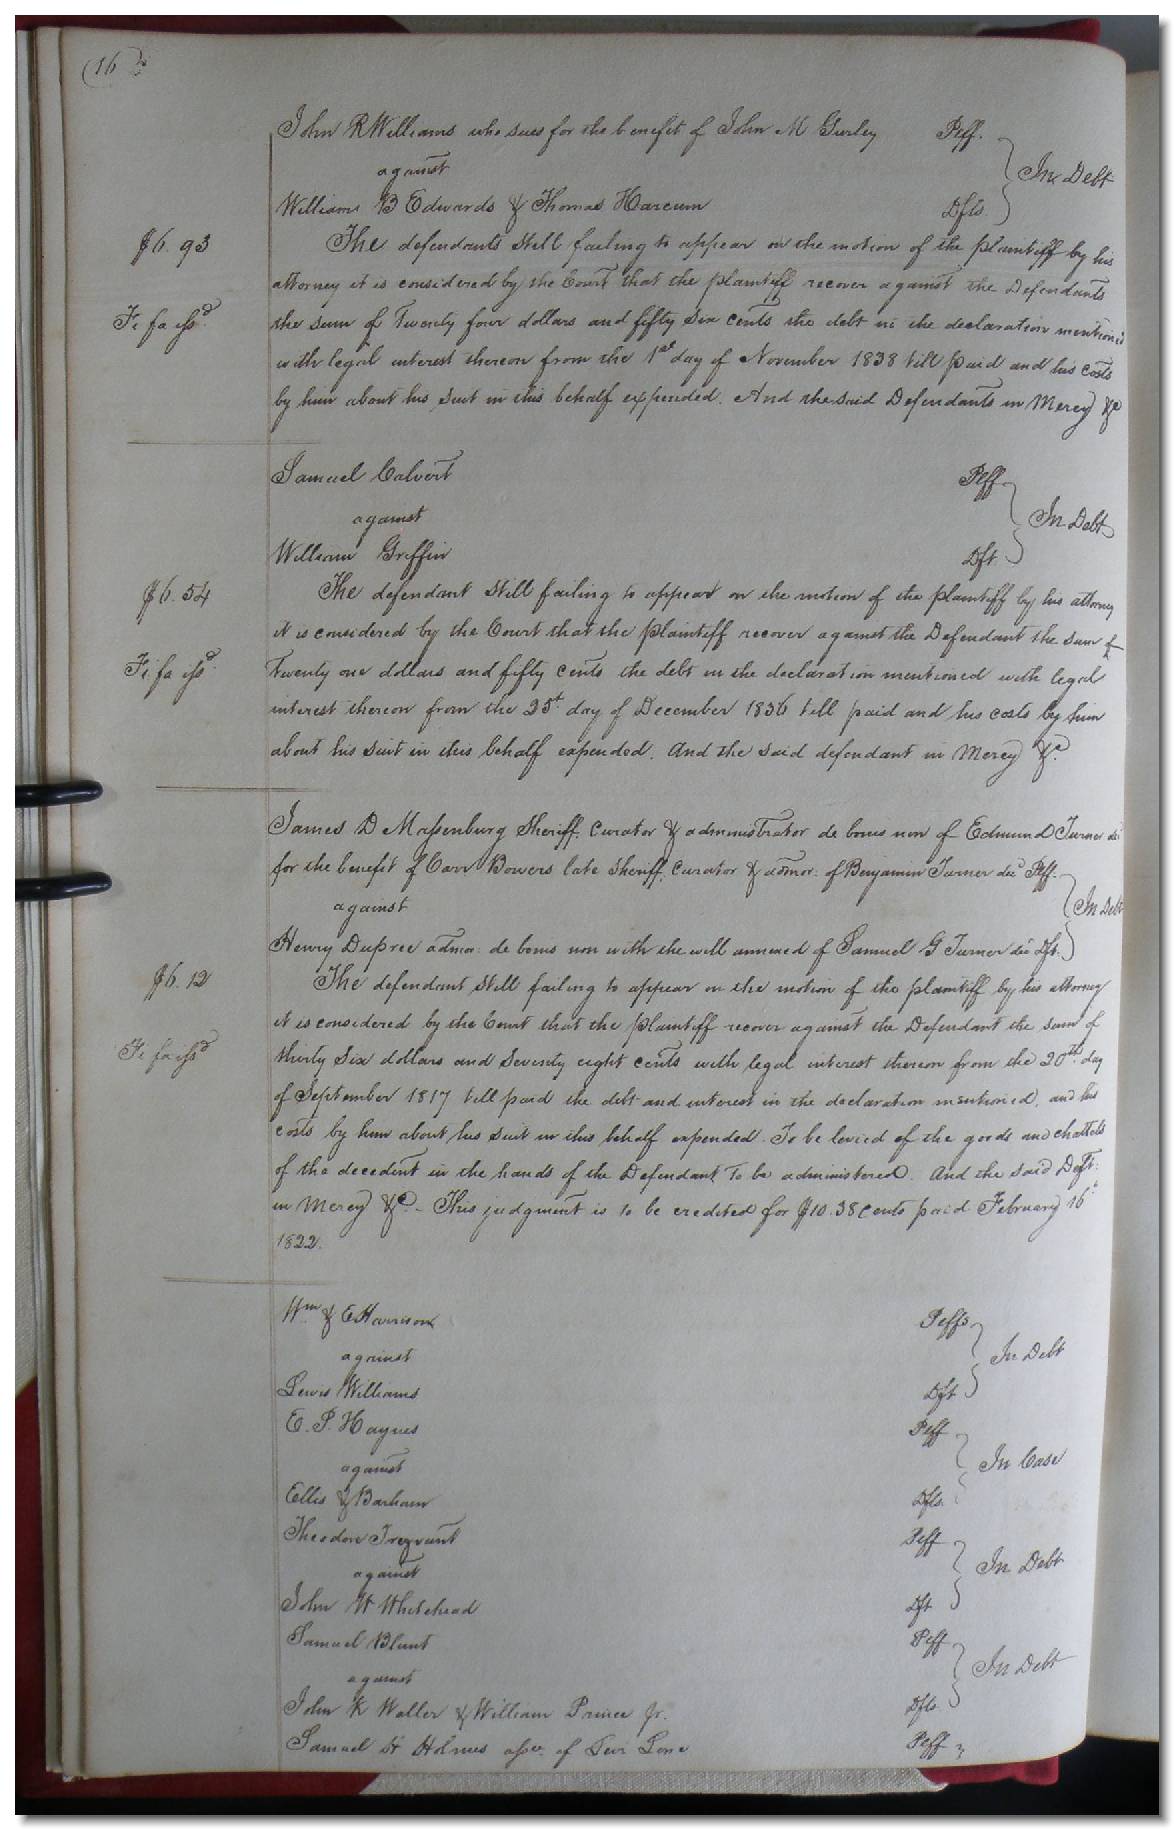 (16)
John R Williams who sues for the benefit of John M Gurley Plff.
against In Debt
William B Edwards & Thomas Harcum Dfts.
$6.93 The defendants still failing to appear on the motion of the plaintiff by his
attorney it is considered by the Court that the plaintiff recover against the Defendants
Fi fa issd. the sum of Twenty four dollars and fifty six cents the debt in the declaration mentioned
with legal interest thereon from the 1st day of November 1838 till paid and his costs
by him about his suit in this behalf expended. And the said Defendants in Mercy &c
Samuel Calvert Plff
against In Debt
William Griffin Dft.
$6.54 The defendant still failing to appear on the motion of the plaintiff by his attorney
it is considered by the Court that the plaintiff recover against the Defendant the sum of
Fi fa issd. Twenty one dollars and fifty cents the debt in the declaration mentioned with legal
interest thereon from the 25t. day of December 1836 till paid and his costs by him
about his suit in this behalf expended. And the said defendant in Mercy &c.
James D Massenburg Sheriff, Curator & administrator de bonis non of Edmund Turner dec
for the benefit of Carr Bowers late Sheriff, Curator & admor: of Benjamin Turner decd Plff.
against In Debt
Henry Dupree admor: de bonis non with the will annexed of Samuel G Turner decd Dft.
$6.12 The defendant still failing to appear on the motion of the plaintiff by his attorney
it is considered by the Court that the plaintiff recover against the Defendant the sum of
Fi fa issd thirty six dollars and seventy eight cents with legal interest thereon from the 20th day
of September 1817 till paid the debt and interest in the declaration mentioned, and his
costs by him about his suit in this behalf expended. To be levied of the goods and chattels
of the decedent in the hands of the Defendant to be administered. And the said Deft:
in Mercy &c - This judgment is to be credited for $10.38 Cents paid February 16t
1822.
Wm & E Harrison Plffs
against In Debt
Lewis Williams Dft
E. P. Haynes Plff
against In Case
Ellis & Barham Dfts.
Theodore Trezvant Plff
against In Debt
John W Whitehead Dft
Samuel Blunt Plff
against In Debt
John K Waller & William Prince Jr. Dfts.
Samuel H Holmes asse. of Levi Lone Plff